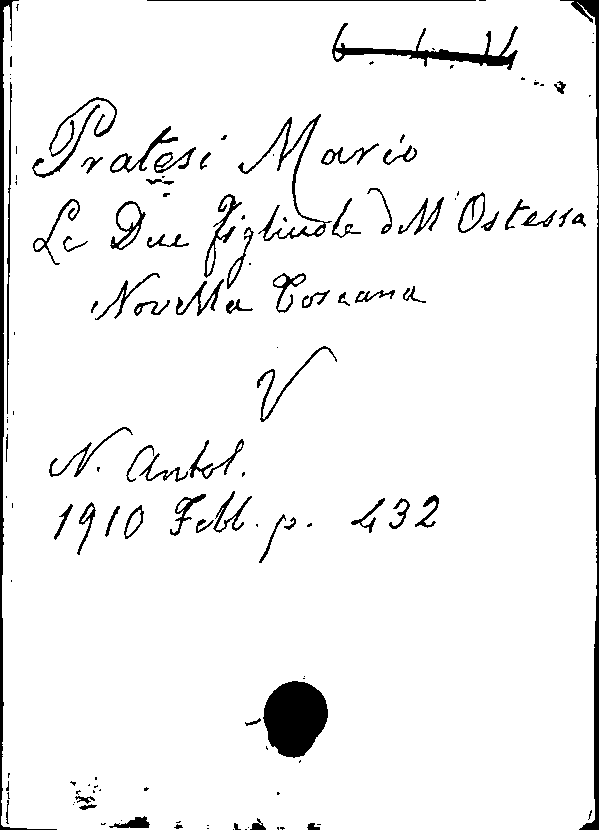 6. 4. 14
Pratesi Mario
Le Due figliuole dell' Ostessa
Novella Toscana
V
N. Antol.
1910 Febb. p. 432